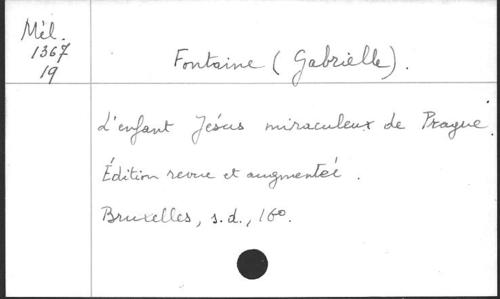 Mél.
1367
19
Fontaine (Gabrielle).
L'enfant Jésus miraculeux de Prague.
Édition revue et augmentée.
Bruxelles, s.d., 16o.